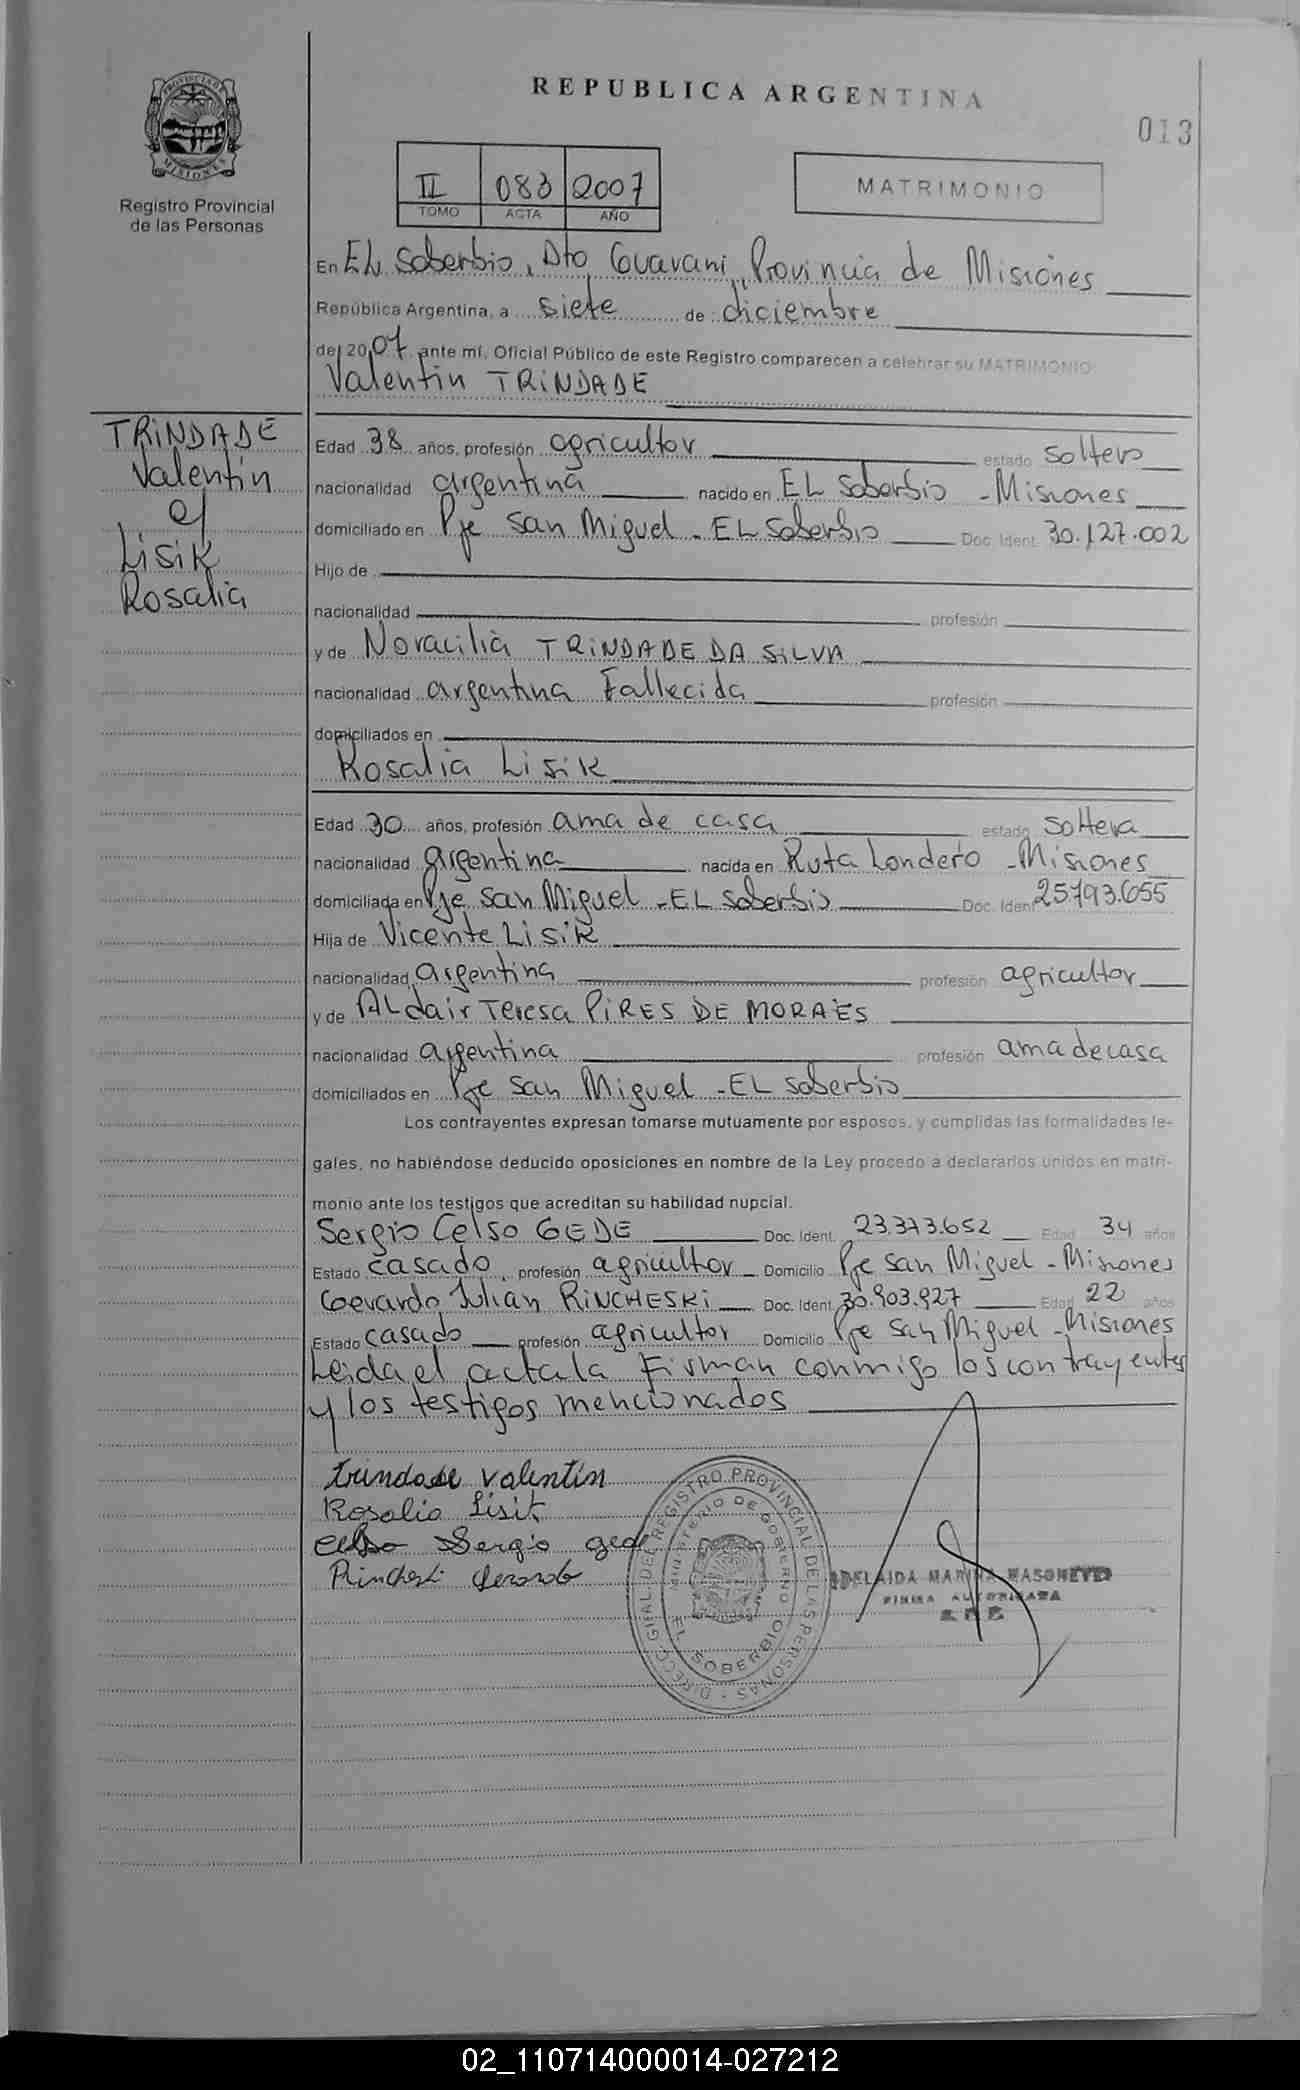 REPUBLICA ARGENTINA
013
PROVINCIA DE
MISIONES
Registro Provincial
de las Personas
II 083 2007
TOMO ACTA AÑO
MATRIMONIO
En EL Soberbio, Dto Guarani, Provincia de Misiones
República Argentina, a siete de diciembre
de 2007 ante mí, Oficial Público de este Registro comparecen a celebrar su MATRIMONIO:
Valentin TRINDADE
TRINDADE
Valentin
c/
Lisik
Rosalia
Edad 38 años, profesión agricultor estado soltero
nacionalidad argentina nacido en EL Soberbio - Misiones
domiciliado en Pje San Miguel - EL Soberbio Doc. Ident. 30.127.002
Hijo de
nacionalidad profesión
y de Noracilia TRINDADE DA SILVA
nacionalidad argentina Fallecida profesión
domiciliados en
Rosalia Lisik
Edad 30 años, profesión ama de casa estado soltera
nacionalidad argentina nacida en Ruta Londero - Misiones
domiciliada en Pje San Miguel - EL Soberbio Doc. Ident. 25.793.655
Hija de Vicente Lisik
nacionalidad argentina profesión agricultor
y de ALdair Teresa PIRES DE MORAES
nacionalidad argentina profesión ama de casa
domiciliados en Pje San Miguel - EL Soberbio
Los contrayentes expresan tomarse mutuamente por esposos, y cumplidas las formalidades le-
gales, no habiéndose deducido oposiciones en nombre de la Ley procedo a declararlos unidos en matri-
monio ante los testigos que acreditan su habilidad nupcial.
Sergio Celso GEDE Doc. Ident. 23.373.652 Edad 34 años
Estado casado, profesión agricultor Domicilio Pje San Miguel - Misiones
Gerardo Julian RINCHESKI Doc. Ident. 30.903.927 Edad 22 años
Estado casado profesión agricultor Domicilio Pje San Miguel - Misiones
Leida el acta la Firman conmigo los contrayentes
y los testigos mencionados
Trindade Valentin
Rosalia Lisik
Celso Sergio gede
Rincheski Gerardo
DIRECC. GRAL. DEL REGISTRO PROVINCIAL DE LAS PERSONAS
MINISTERIO DE GOBIERNO
EL SOBERBIO
ADELAIDA MARINA
FIRMA AUTORIZADA
02_110714000014-027212